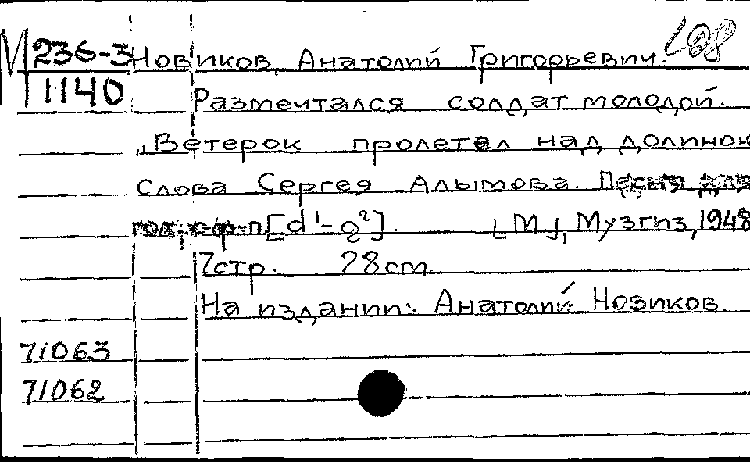 М 236-3 Новиков, Анатолий Григорьевич. 108
1140 Размечтался солдат молодой.
„Ветерок пролетел над долиной
Слова Сергея Алымова. Песня для
гол. с ф-п [d¹-g²]. [М], Музгиз, 1948
7стр. 28см.
На издании: Анатолий Новиков.
71063
71062